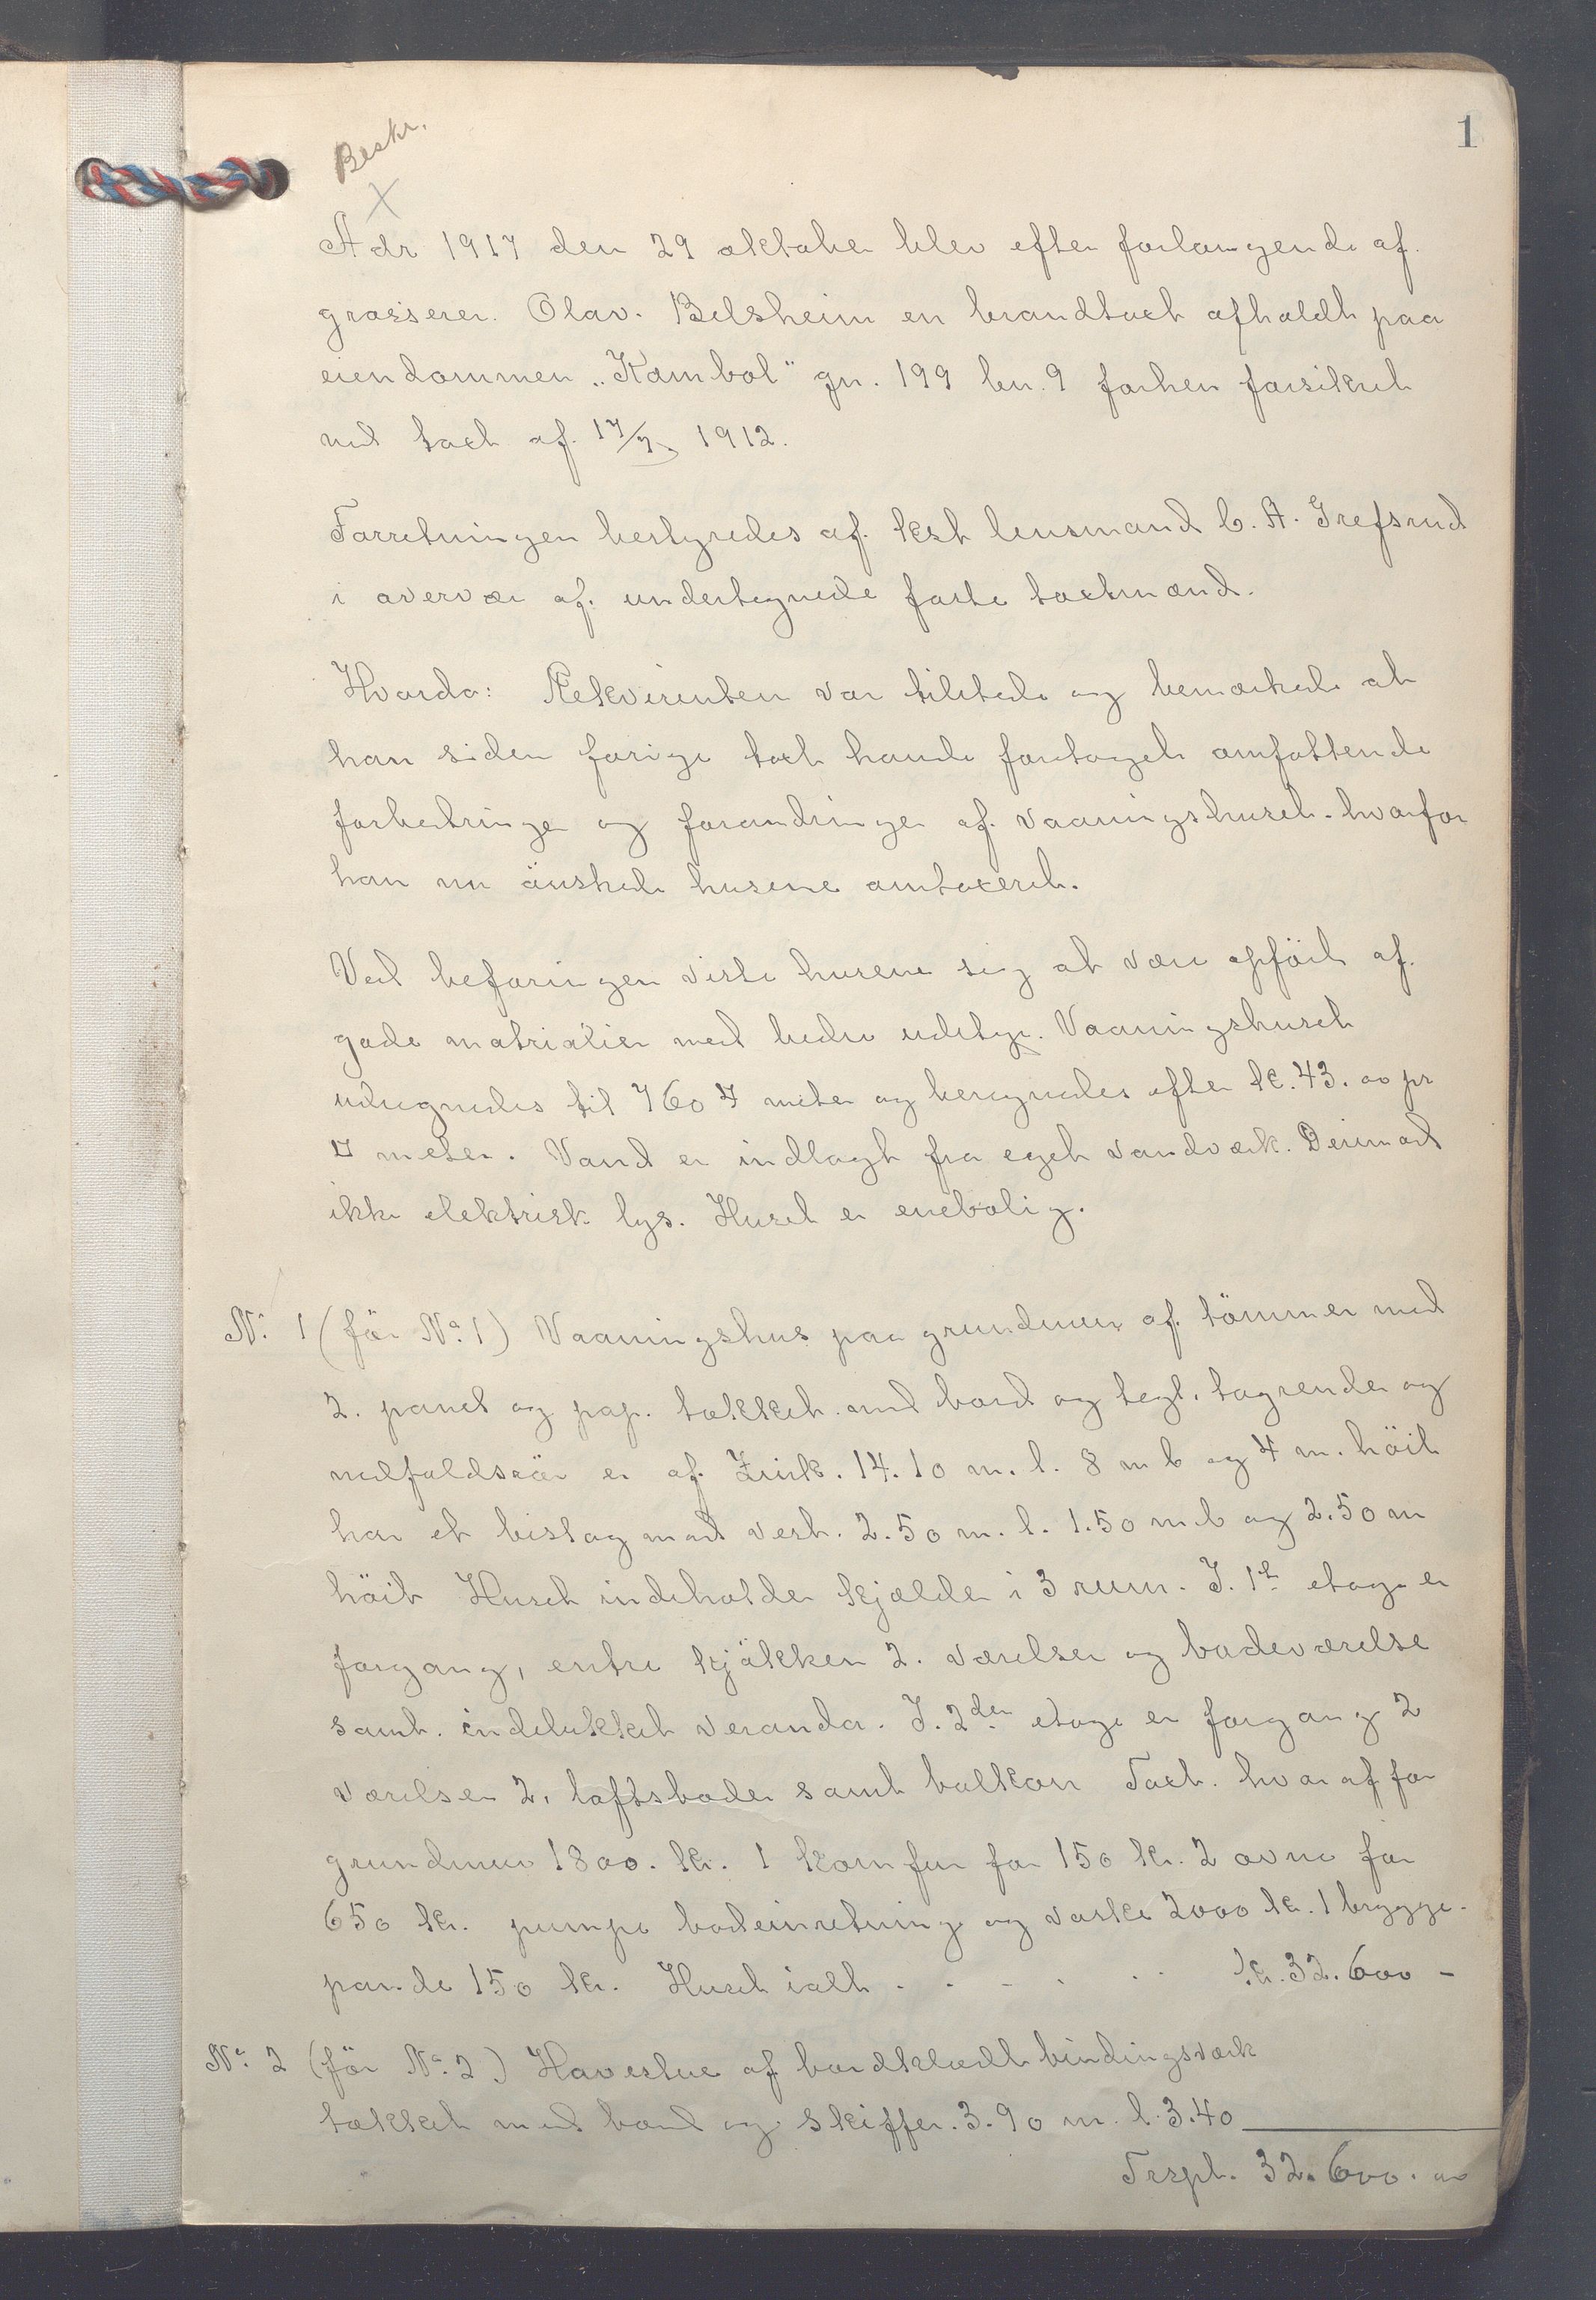 1
Beskr.
X
Aar 1917 den 29 oktober blev efter forlangende af
grosserer. Olav. Belsheim en brandtaxt afholdt paa
eiendommen „Kambol" gn. 199 bn. 9 forhen forsikret
ved taxt af. 17/7 1912.
Forretningen bestyredes af. kst lensmand C. A. Grefsrud
i overvær af. undertegnede faste taxtmænd.
Hvorda: Rekvirenten var tilstede og bemærkede at
han siden forige taxt havde foretaget omfattende
forbedringer og forandringer af. vaaningshuset. hvorfor
han nu önskede husene omtaxeret.
Ved befaringen viste husene sig at være opfört af.
gode matrialier med bedre udstyr. Vaaningshuset
udregnedes til 760 □ meter og beregnedes efter k. 43. oo pr
□ meter. Vand er indlagt fra eget vandværk. Derimod
ikke elektrisk lys. Huset er enebolig.
No. 1 (för No. 1) Vaaningshus paa grundmur af. tömmer med
2. panel og pap. tækket med bord og tegl. tagrender og
nedfaldsrör er af. Zink. 14.10 m. l. 8 m b og 4 m. höit
har et bislag mod vest. 2.50 m. l. 1.50 m b og 2.50 m
höit Huset indeholder kjælder i 3 rum. I. 1st etage er
forgang, entre kjökken 2. værelser og badeværelse
samt. indelukket veranda. I. 2den etage er forgang 2
værelser 2, loftsboder samt balkon Taxt. hvoraf for
grundmur 1800. kr. 1 komfur for 150 kr. 2 ovne for
650 kr. pumpe badeinretning og vaske 2000 kr. 1 brygge-
pande 150 kr. Huset ialt . . . . . . kr. 32.600 -
No. 2 (för No. 2) Havestue af bordklædt bindingsværk
tækket med bord og skiffer. 3.90 m. l. 3.40
Trspt. 32.600. oo